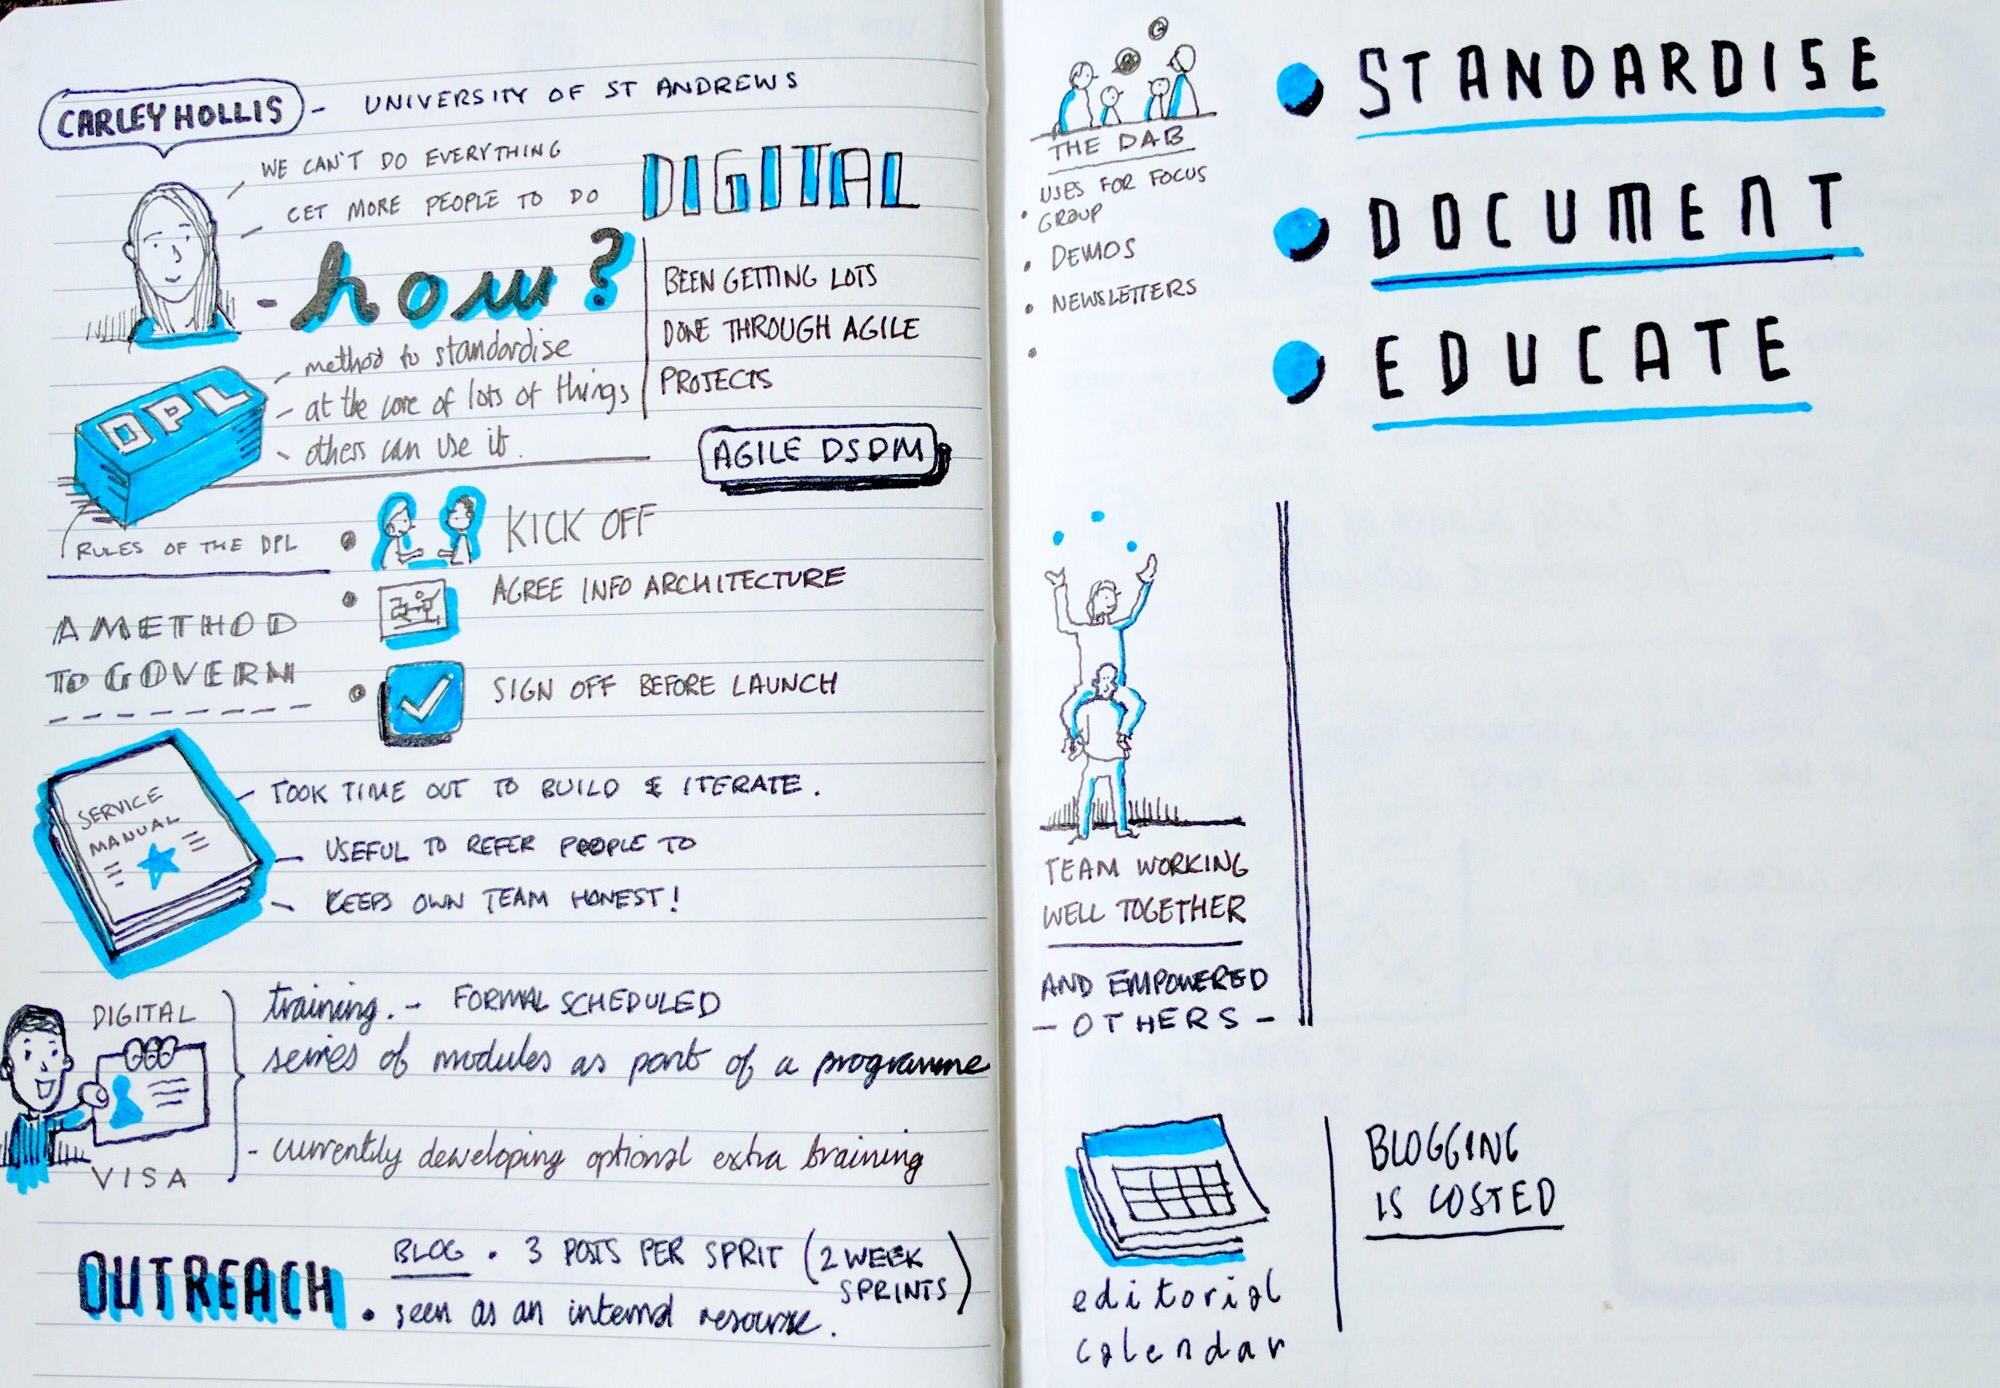 CARLEY HOLLIS - UNIVERSITY OF ST ANDREWS
WE CAN'T DO EVERYTHING
GET MORE PEOPLE TO DO
DIGITAL
- how?
BEEN GETTING LOTS
DONE THROUGH AGILE
PROJECTS
AGILE DSDM
DPL
- method to standardise
- at the core of lots of things
- others can use it.
RULES OF THE DPL
A METHOD
TO GOVERN
• KICK OFF
• AGREE INFO ARCHITECTURE
• SIGN OFF BEFORE LAUNCH
SERVICE
MANUAL
- TOOK TIME OUT TO BUILD & ITERATE.
- USEFUL TO REFER PEOPLE TO
- KEEPS OWN TEAM HONEST!
DIGITAL
VISA
training. - FORMAL SCHEDULED
series of modules as part of a programme
- currently developing optional extra training
OUTREACH
BLOG • 3 POSTS PER SPRIT (2 WEEK
SPRINTS)
• seen as an internal resource.
THE DAB
• USES FOR FOCUS
GROUP
• DEMOS
• NEWSLETTERS
•
• STANDARDISE
• DOCUMENT
• EDUCATE
TEAM WORKING
WELL TOGETHER
AND EMPOWERED
- OTHERS -
editorial
calendar
BLOGGING
IS COSTED